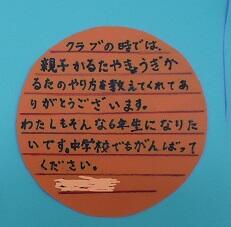 クラブの時では、
親子かるたやきょうぎか
るたのやり方を教えてくれてあ
りがとうございます。
わたしもそんな6年生になりた
いです。中学校でもがんばって
ください。